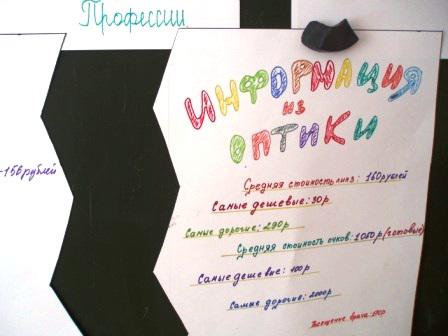 Профессии
-156 рублей
ИНФОРМАЦИЯ
ИЗ
ОПТИКИ
Средняя стоимость линз: 160 рублей
Самые дешевые: 30р
Самые дорогие: 290р
Средняя стоимость очков: 1050р (готовые)
Самые дешевые: 100р
Самые дорогие: 2000р
врача: